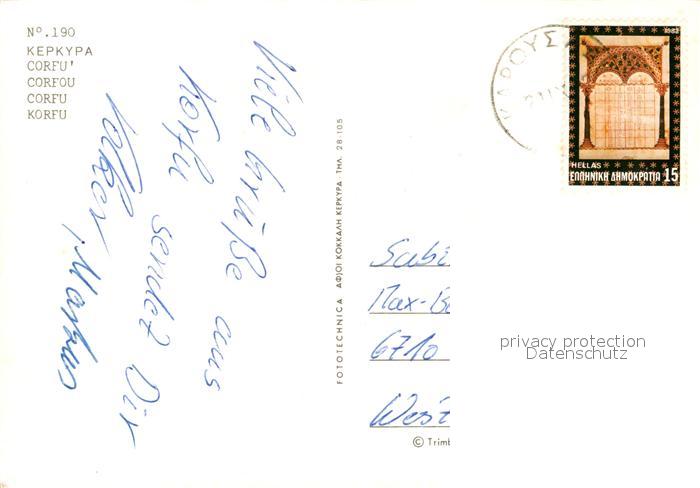 Nº.190
ΚΕΡΚΥΡΑ
CORFU'
CORFOU
CORFU
KORFU
Viele Grüße aus
Korfu sendet Dir
Volker, Markus
FOTOTECHNICA ΑΦ/ΟΙ ΚΟΚΚΑΛΗ ΚΕΡΚΥΡΑ ΤΗΛ. 28-105
1982
HELLAS
ΕΛΛΗΝΙΚΗ ΔΗΜΟΚΡΑΤΙΑ 15
Sabi
Max-B
6710
West
privacy protection
Datenschutz
© Trimb